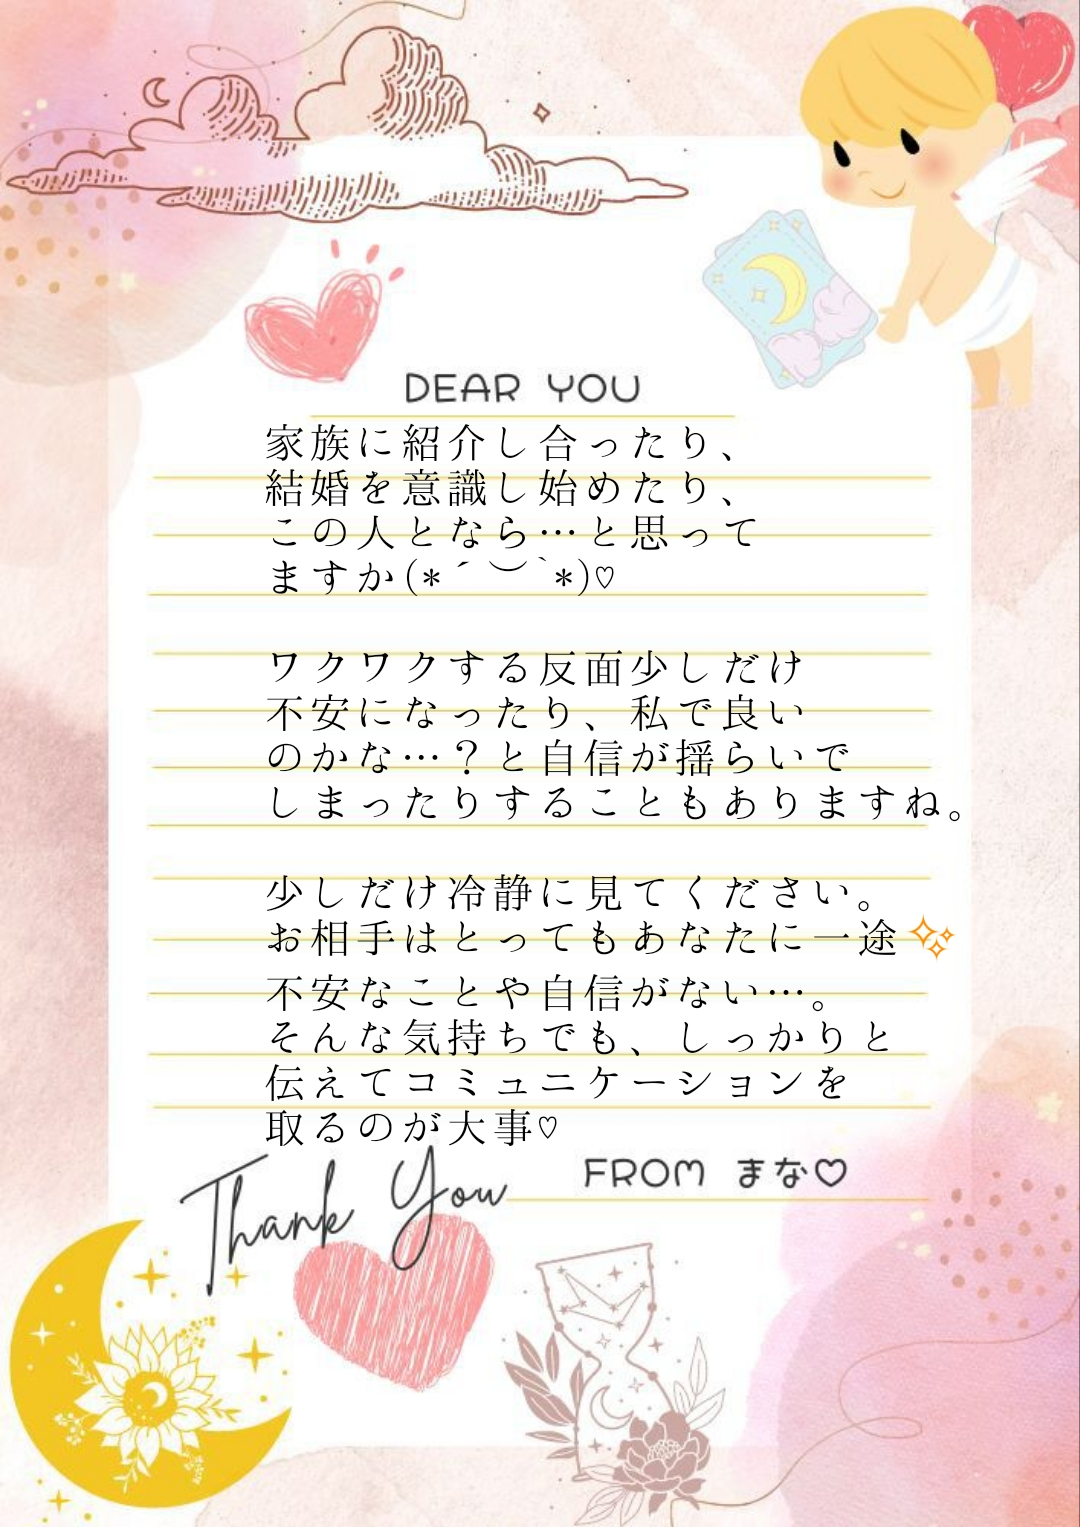 DEAR YOU
家族に紹介し合ったり、
結婚を意識し始めたり、
この人となら…と思って
ますか(*´︶`*)♡
ワクワクする反面少しだけ
不安になったり、私で良い
のかな…？と自信が揺らいで
しまったりすることもありますね。
少しだけ冷静に見てください。
お相手はとってもあなたに一途✨
不安なことや自信がない…。
そんな気持ちでも、しっかりと
伝えてコミュニケーションを
取るのが大事♡
FROM まな♡
Thank You